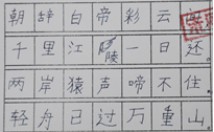 朝辞白帝彩云
千里江陵一日还
两岸猿声啼不住
轻舟已过万重山